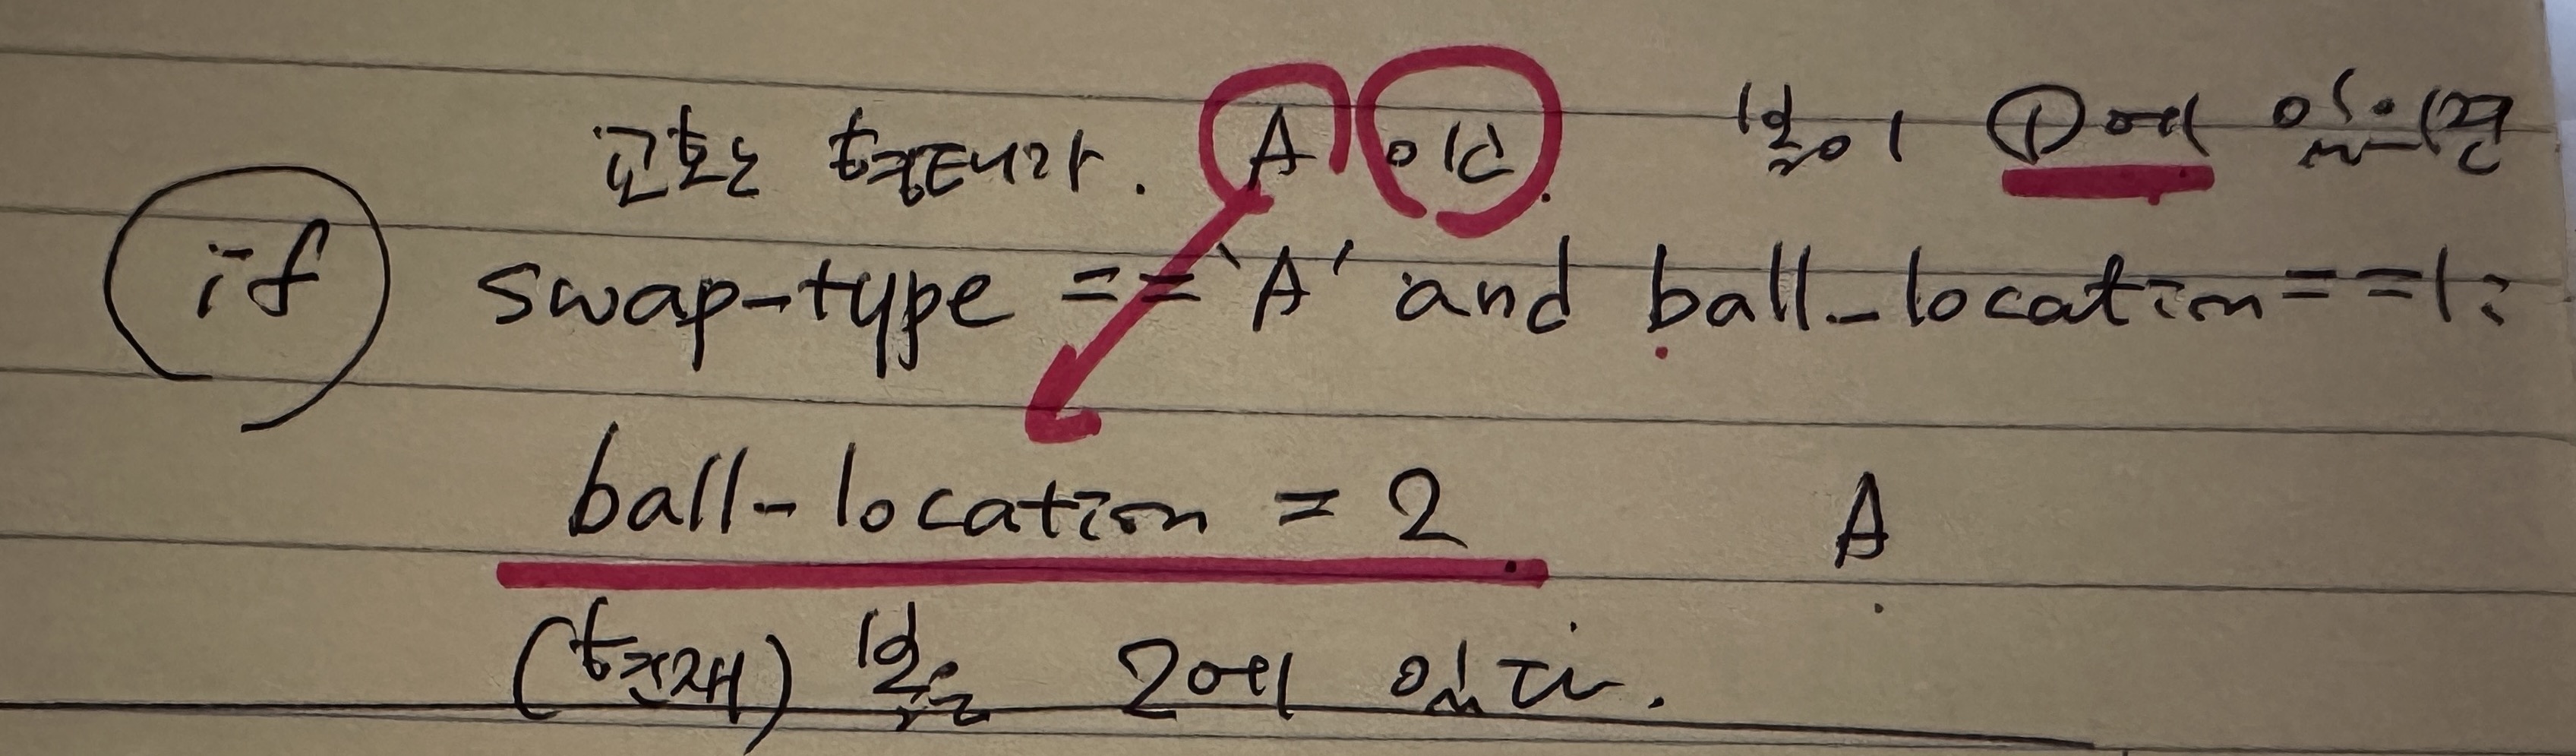 교환는 형태가. A 이고. 볼이 ①에 있으면
if swap-type == 'A' and ball-location == 1:
ball-location = 2 A
(현재) 볼은 2에 있다.